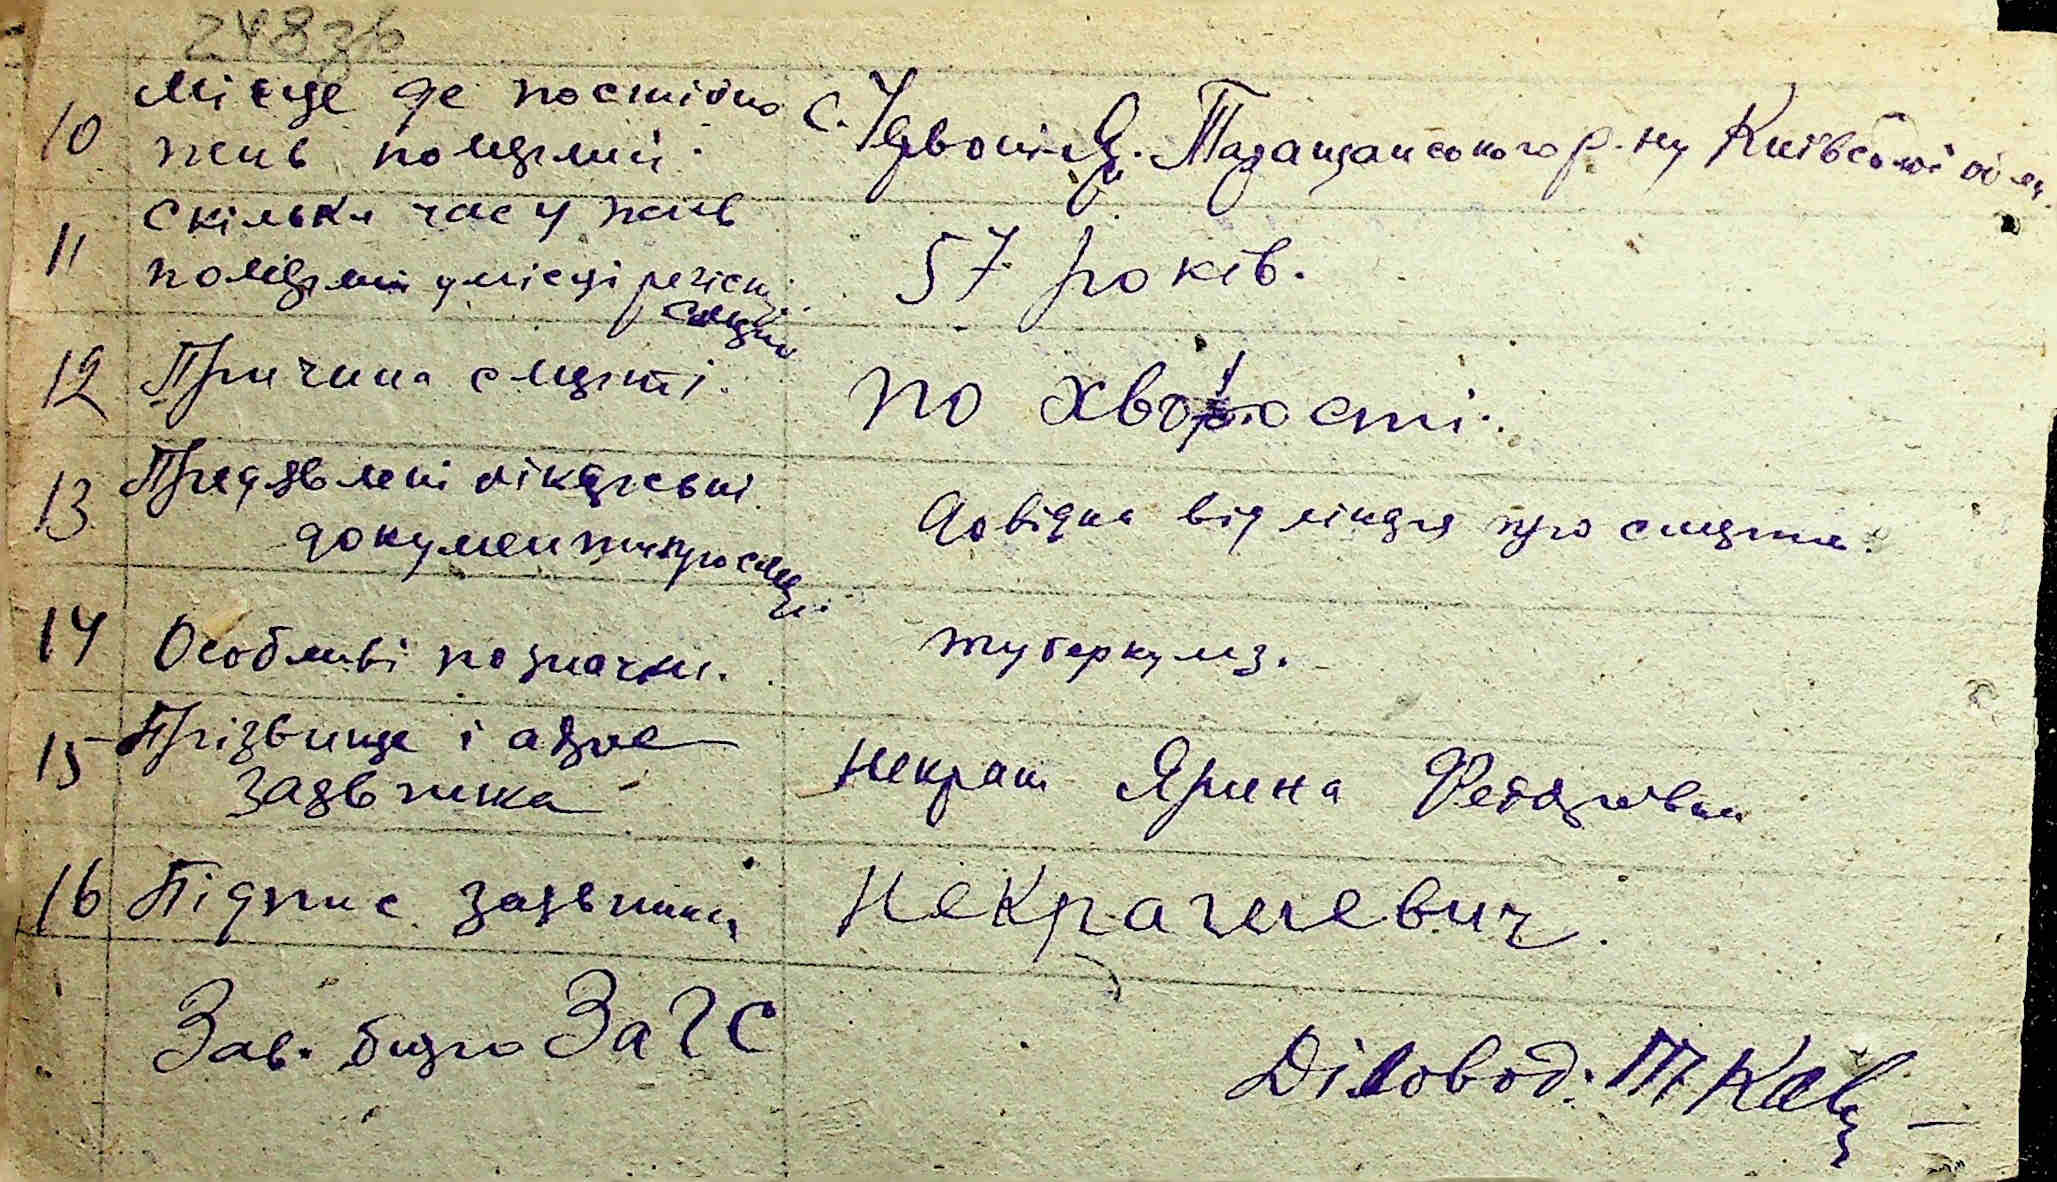 248зв
10 Місце де постійно
жив померлий. с. Таращанського р-ну Київської обл.
11 Скільки часу жив
померлий у місці реєст
рації 57 років.
12 Причина смерті. по хворості.
13 Предявлені лікарські
документи про смер. Довідка від лікаря про смерть.
14 Особливі позначки. туберкулз.
15 Прізвище і адрес
заявника Некраш Ярина Федорівна
16 Підпис заявника Некрашевич.
Зав. бюро ЗАГС
Діловод: